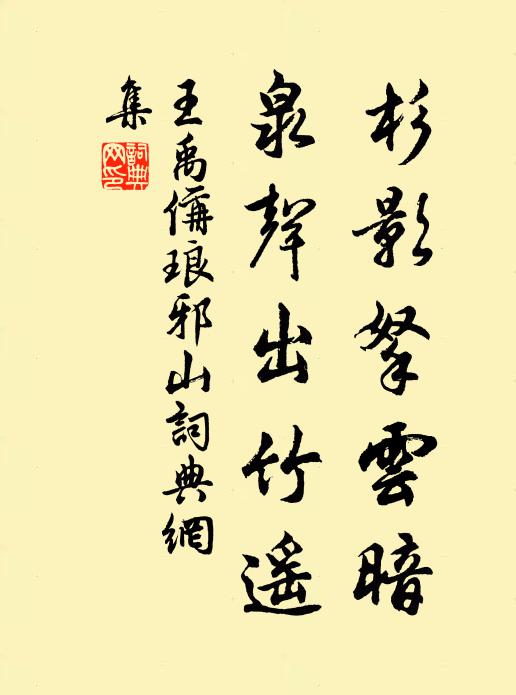 杉影拏雲暗
泉聲出竹遙
王禹偁琅邪山詞典網
集
詞典网印